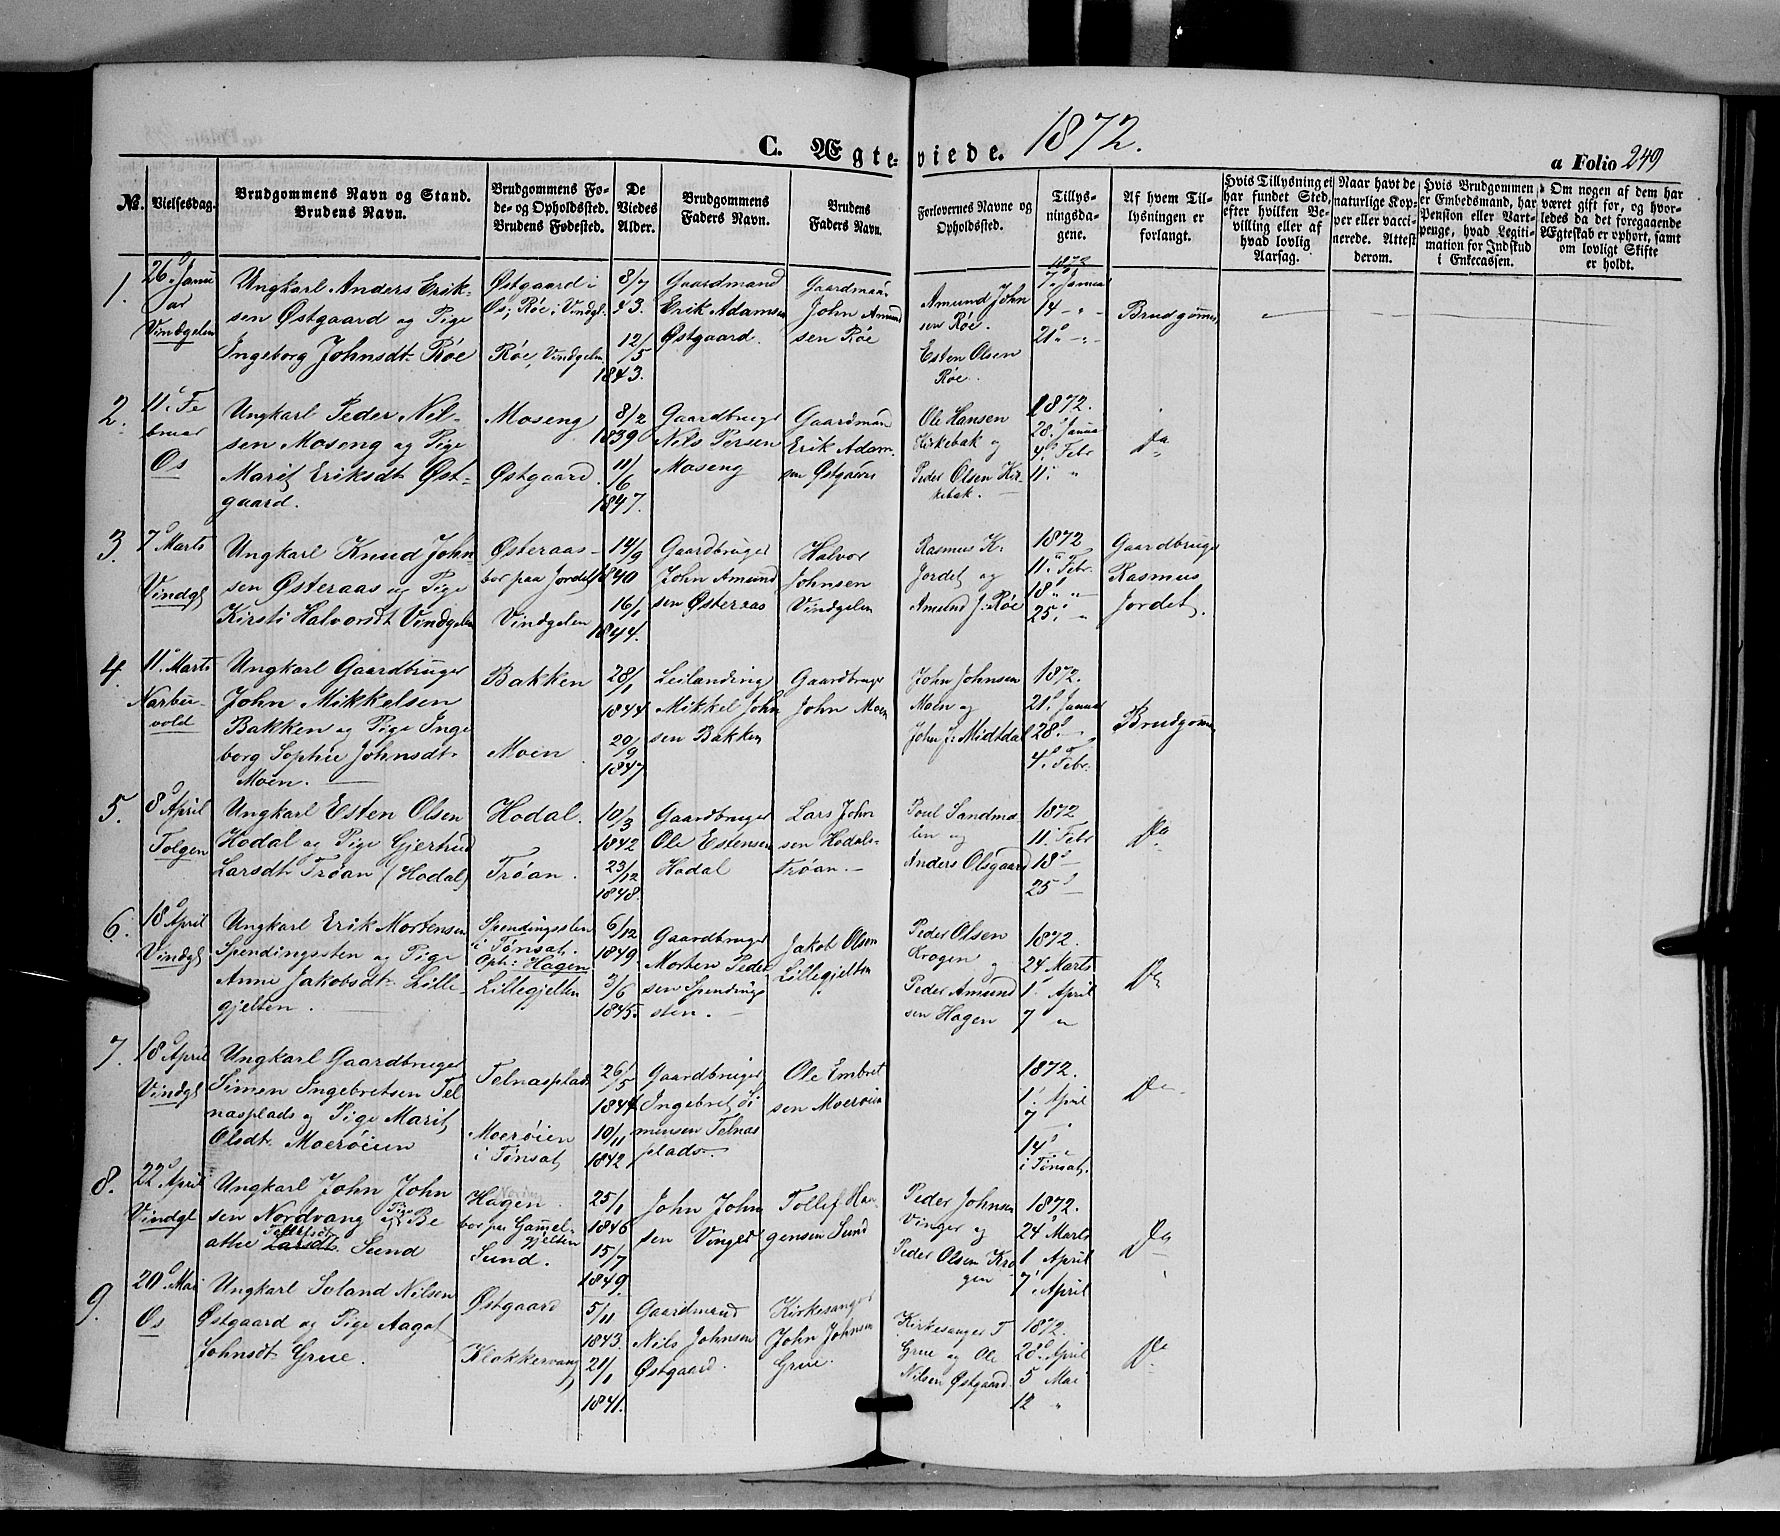 C. Ægteviede. 1872.
a Folio 249
No.
Vielsesdag.
Brudgommens Navn og Stand.
Brudens Navn.
Brudgommens Fø-
de- og Opholdssted.
Brudens Fødested.
De
Viedes
Alder.
Brudgommens
Faders Navn.
Brudens
Faders Navn.
Forlovernes Navne og
Opholdssted.
Tillys-
ningsda-
gene.
Af hvem Til-
lysningen er
forlangt.
Hvis Tillysning ei
har fundet Sted,
efter hvilken Be-
villing eller af
hvad lovlig
Aarsag.
Naar havt de
naturlige Kop-
per eller vacci-
nerede. Attest
derom.
Hvis Brudgommen
er Embedsmand, har
Pension eller Vart-
penge, hvad Legiti-
mation for Indskud
i Enkecassen.
Om nogen af dem har
været gift før, og hvor-
ledes da det foregaaende
Ægteskab er ophørt, samt
om lovligt Skifte
er holdt.
1.
26. Janu
ar
Vindgelen
Ungkarl Anders Erik-
sen Østgaard og Pige
Ingeborg Johnsdt. Røe
Østgaard i
Os; Røe i Vindgl.
Røe, Vindgelen
8/7
43.
12/5
1843.
Gaardmand
Erik Adamsen
Østgaard.
Gaardman
John Amund
sen Røe
Amund John
sen Røe.
Esten Olsen
Røe.
1872
7. Januar
14 - -
21. - -
Brudgommen
2.
11. Fe
bruar
Os
Ungkarl Peder Nil-
sen Moseng og Pige
Marit Eriksdt. Øst-
gaard.
Moseng
Østgaard.
8/2
1839
11/6
1847.
Gaardbruger
Nils Persen
Moseng
Gaardmand
Erik Adam-
sen Østgaard
Ole Hansen
Kirkebak og
Peder Olsen Kir-
kebak.
1872.
28. Januar
4. Febr
11. "
Do
3.
7 Marts
Vindgl
Ungkarl Knud John-
sen Østeraas og Pige
Kirsti Halvorsdt Vindgelen
Østeraas -
bor paa Jordet
Vindgelen
14/9
1840
16/1
1844.
Gaardbruger
John Amund
sen Østeraas
Halvor
Johnsen
Vindgelen
Rasmus K.
Jordet og
Amund J: Røe
1872
11. Febr.
18. " "
25. "
Gaardbruger
Rasmus
Jordet.
4.
11. Marts
Narbu-
vold
Ungkarl Gaardbruger
John Mikkelsen
Bakken og Pige Inge
borg Sophie Johnsdt.
Moen.
Bakken
Moen
28/1
1844
20/9
1847
Leilænding
Mikkel John
sen Bakken
Gaardbruger
John Moen
John Johnsen
Moen og
John J: Midtdal
1872.
21. Januar
28. -
4. Febr.
Brudgommen
5.
8 April
Tolgen
Ungkarl Esten Olsen
Hodal og Pige Gjertrud
Larsdt. Trøan (Hodal)
Hodal.
Trøan.
10/3
1842
23/12
1848.
Gaardbruger
Ole Estensen
Hodal
Lars John
sen Hodals-
trøan.
Poul Sandmæ-
len og
Anders Olsgaard
1872
11. Febr
18
25
Do.
6.
18 April
Vindgl
Ungkarl Erik Mortensen
Spendingssten og Pige
Anne Jakobsdt. Lille-
gjelten.
Spendingssten
i Tønsæt.
Oph: Hagen
Lillegjelten
6/12
1849.
3/6
1845.
Gaardbruger
Morten Peder
sen Spendings
sten.
Jakob Olsen
Lillegjelten
Peder Olsen
Krogen og
Peder Amund
sen Hagen
1872.
24 Marts
1. April
7 "
Do
7.
18 April
Vindgl
Ungkarl Gaardbruger
Simen Ingebretsen Tel
næsplads og Pige Marit
Olsdt. Moerøien
Telnæsplads
Moerøien
i Tønsæt
26/5
1844
10/11
1842
Gaardbruger
Ingebret Si
mensen Telnæs
plads.
Ole Embret
sen Moerøien
1872.
1. April
7
14.
i Tønsæt.
Do
8.
22 April
Vindgl
Ungkarl John John
sen Nordvang og Pige Be
athe Tollefsdt Larsdt. Sund
Hagen.
bor paa Gammel-
gjelten
Sund.
25/1
1846
15/7
1849.
John John
sen Vinger
Tollef Haa-
gensen Sund
Peder Johnsen
Vinger og
Peder Olsen Kro
gen
1872.
24 Marts
1 April
7. April
Do
9.
20. Mai
Os
Ungkarl Soland Nilsen
Østgaard og Pige Aagot
Johnsdt. Grue.
Østgaard
Klokkervang
5/11
1843.
21/1
1841.
Gaardmand
Nils Johnsen
Østgaard.
Kirkesanger
John Johnsen
Grue.
Kirkesanger T
Grue og Ole
Nilsen Østgaard.
1872.
28. April
5 Mai
12 "
Do.